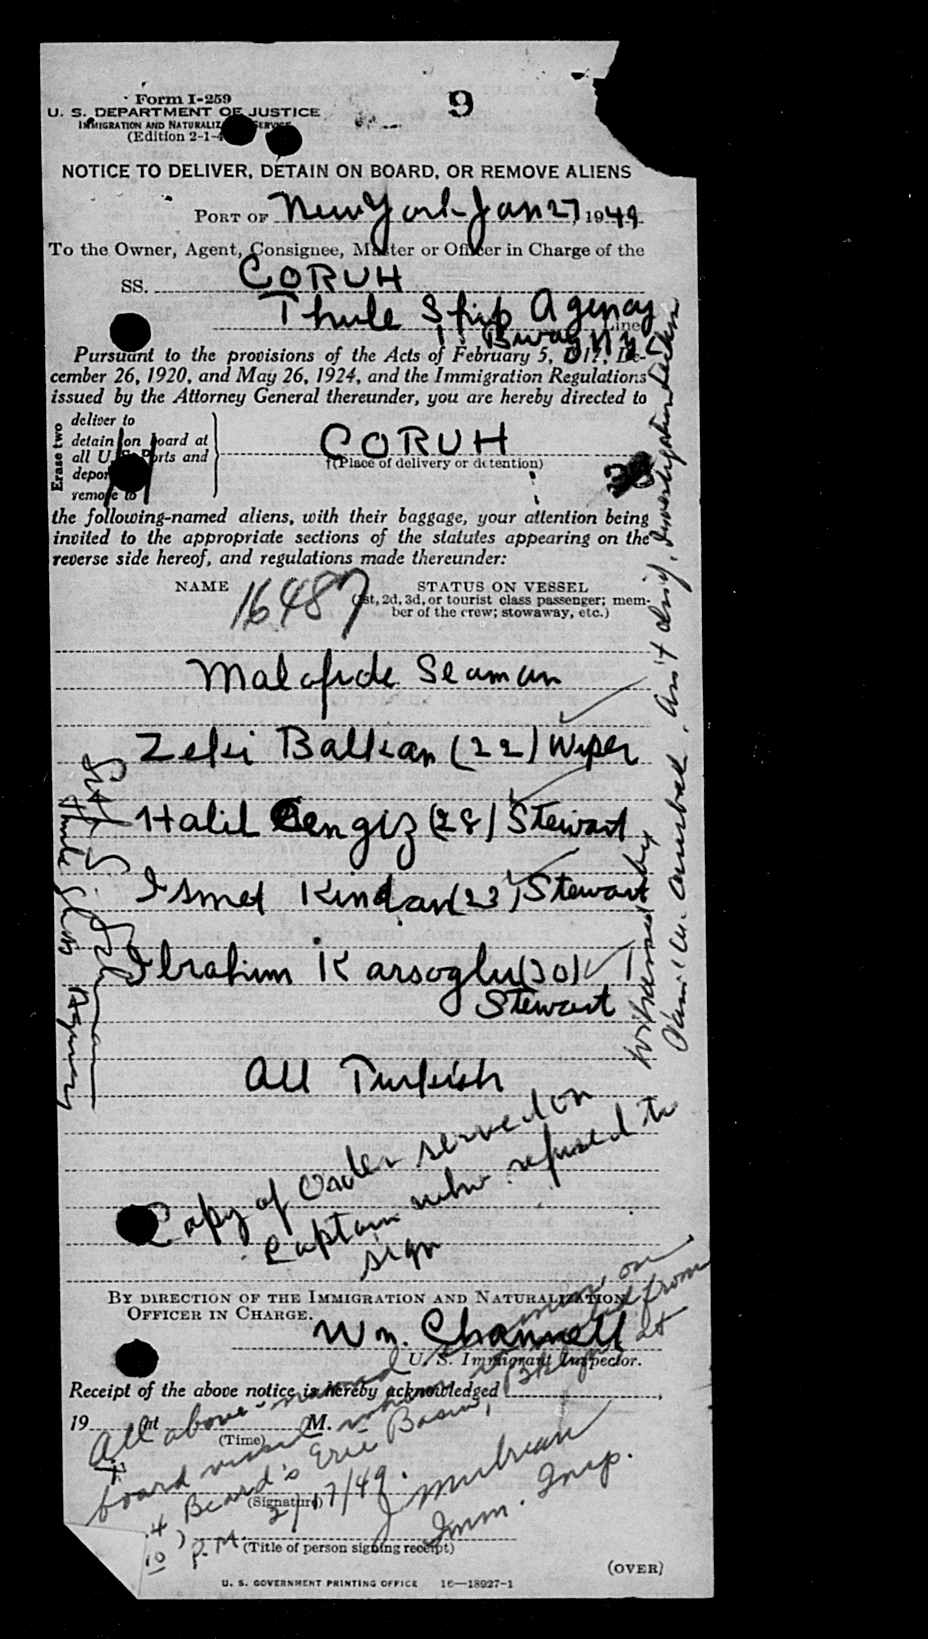 Form I-259
9
U. S. DEPARTMENT OF JUSTICE
IMMIGRATION AND SERVICE
(Edition 2-1-
NOTICE TO DELIVER, DETAIN ON BOARD, OR REMOVE ALIENS
PORT OF New York Jan 27, 1949
To the Owner, Agent, Consignee, Master or Officer in Charge of the
SS. CORUH
Thule Ship Agency Line
11 Bway N Y C
Pursuant to the provisions of the Acts of February 5, 1917, De-
cember 26, 1920, and May 26, 1924, and the Immigration Regulations
issued by the Attorney General thereunder, you are hereby directed to
Erase two
deliver to
detain on board at
all U. S. Ports and
remove to
CORUH
(Place of delivery or detention)
the following-named aliens, with their baggage, your attention being
invited to the appropriate sections of the statutes appearing on the
reverse side hereof, and regulations made thereunder:
NAME 16487 STATUS ON VESSEL
(1st, 2d, 3d, or tourist class passenger; mem-
ber of the crew; stowaway, etc.)
Malafide Seaman
Zeki Balkan (22) Wiper
Halil Cengiz (28) Stewart
Ismet Kindan (23) Stewart
Ibrahim Karsoglu (30)
Stewart
All Turkish
Copy of Order served on
Captain who refused to
sign
Thule Ship Agency
BY DIRECTION OF THE IMMIGRATION AND NATURALIZATION
OFFICER IN CHARGE.
Wm. Channell
U. S. Immigrant Inspector.
Receipt of the above notice is hereby acknowledged
19 at M.
(Time)
(Signature)
(Title of person signing receipt)
All above-named seamen on
board vessel when it sailed from
Beard's Erie Basin, Bklyn at
4 10 P.M. 2/17/49.
Imm. Insp.
(OVER)
U. S. GOVERNMENT PRINTING OFFICE 16—18927-1